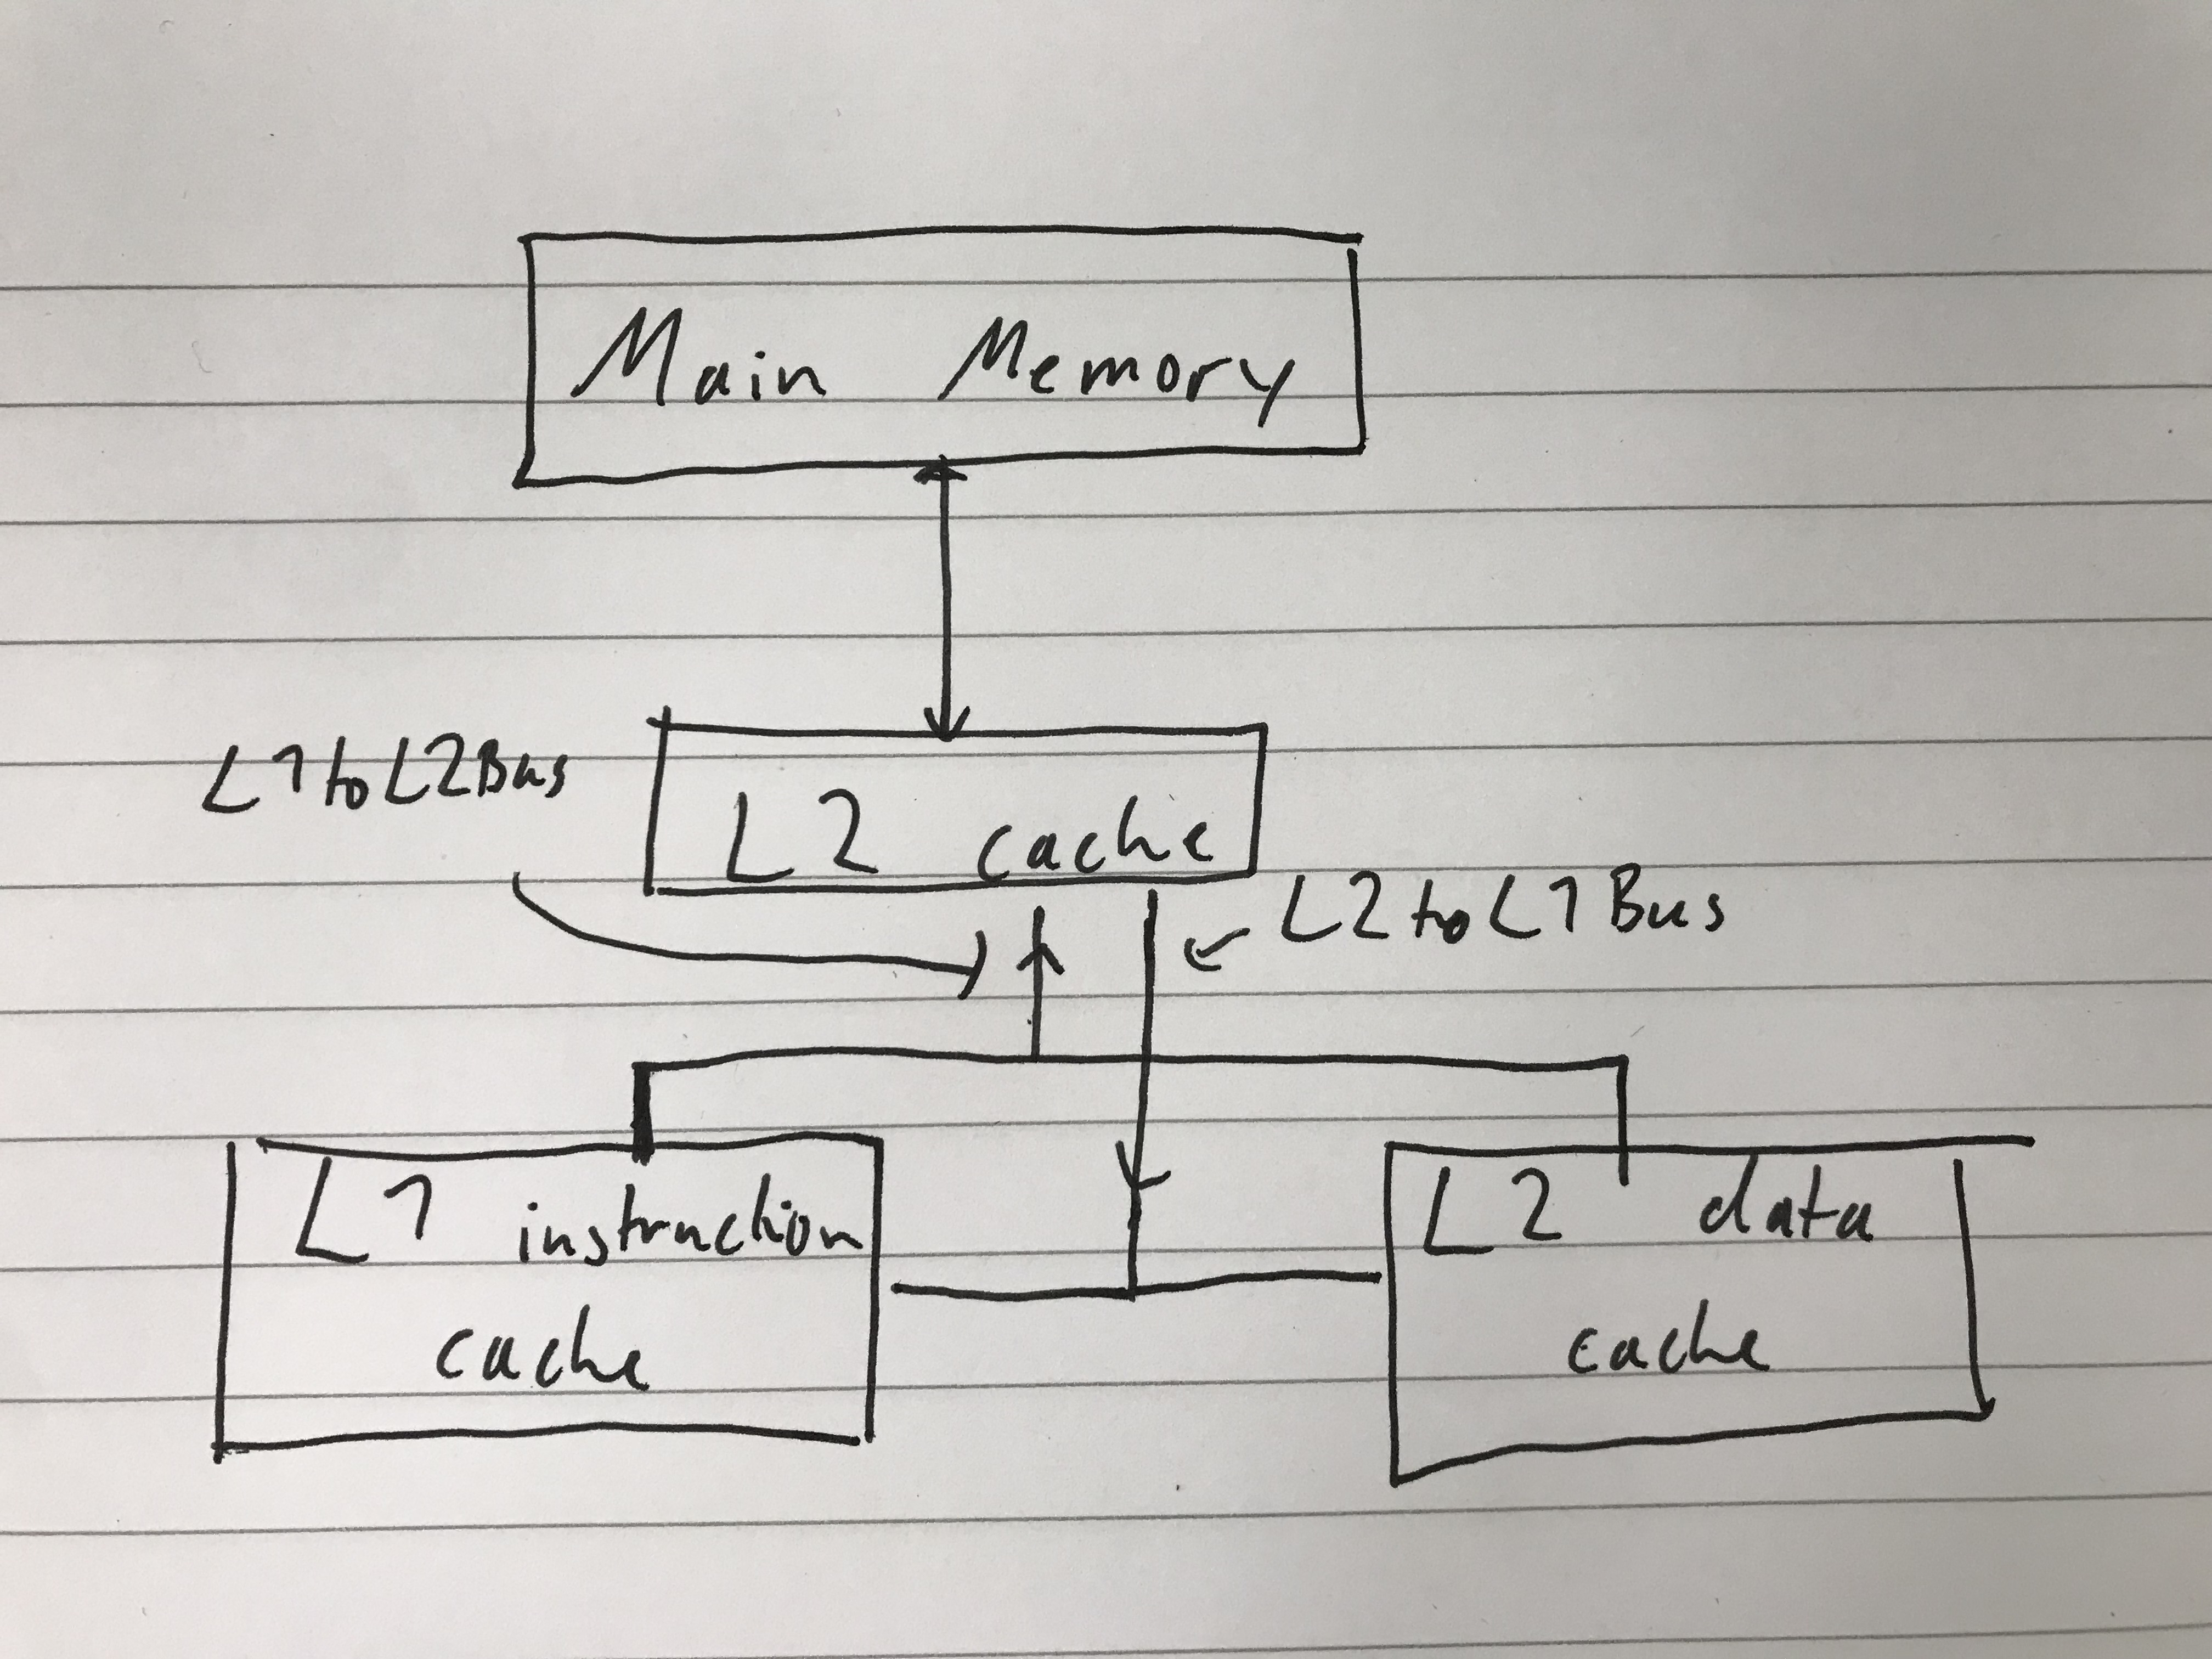 Main Memory
L1toL2Bus
L2 cache
L2toL1Bus
L1 instruction
cache
L2 data
cache